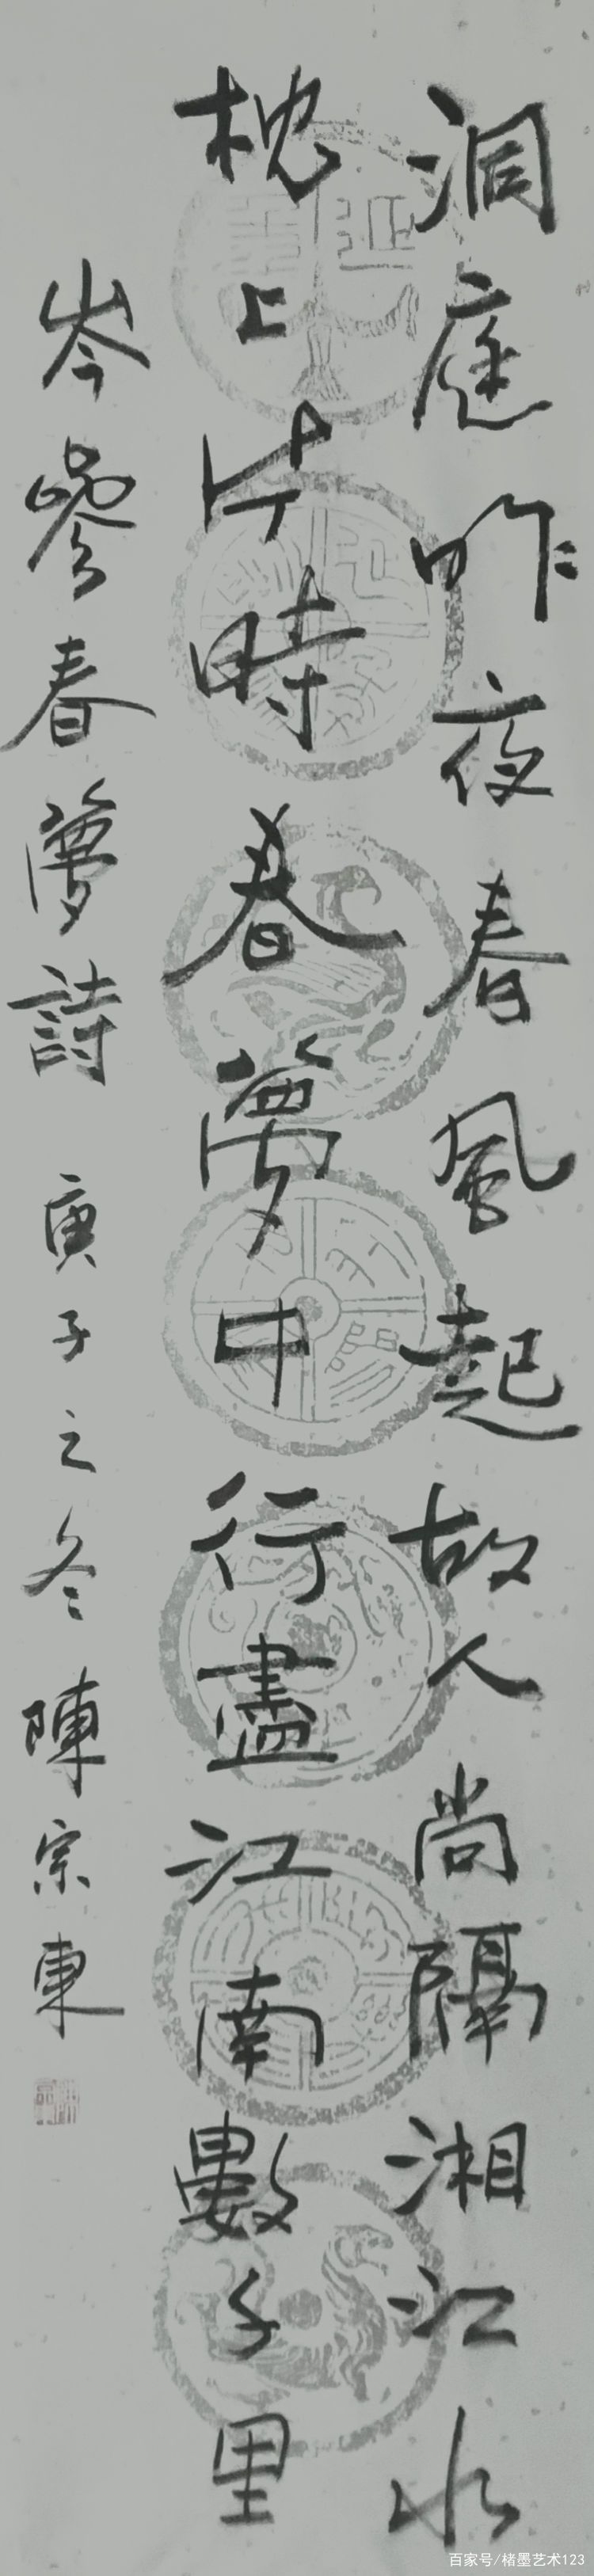 洞庭昨夜春風起故人尚隔湘江水
枕上片時春夢中行盡江南數千里
岑參春夢詩 庚子之冬 陳宗東
百家号/楮墨艺术123